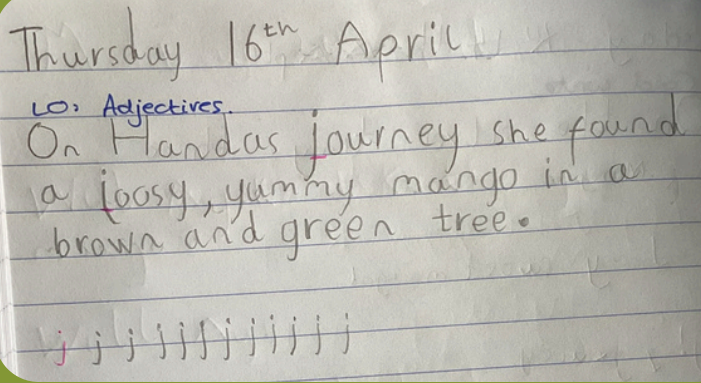 Thursday 16th April
LO: Adjectives.
On Handas journey she found
a joosy, yummy mango in a
brown and green tree.
j j j j j j j j j j j j j